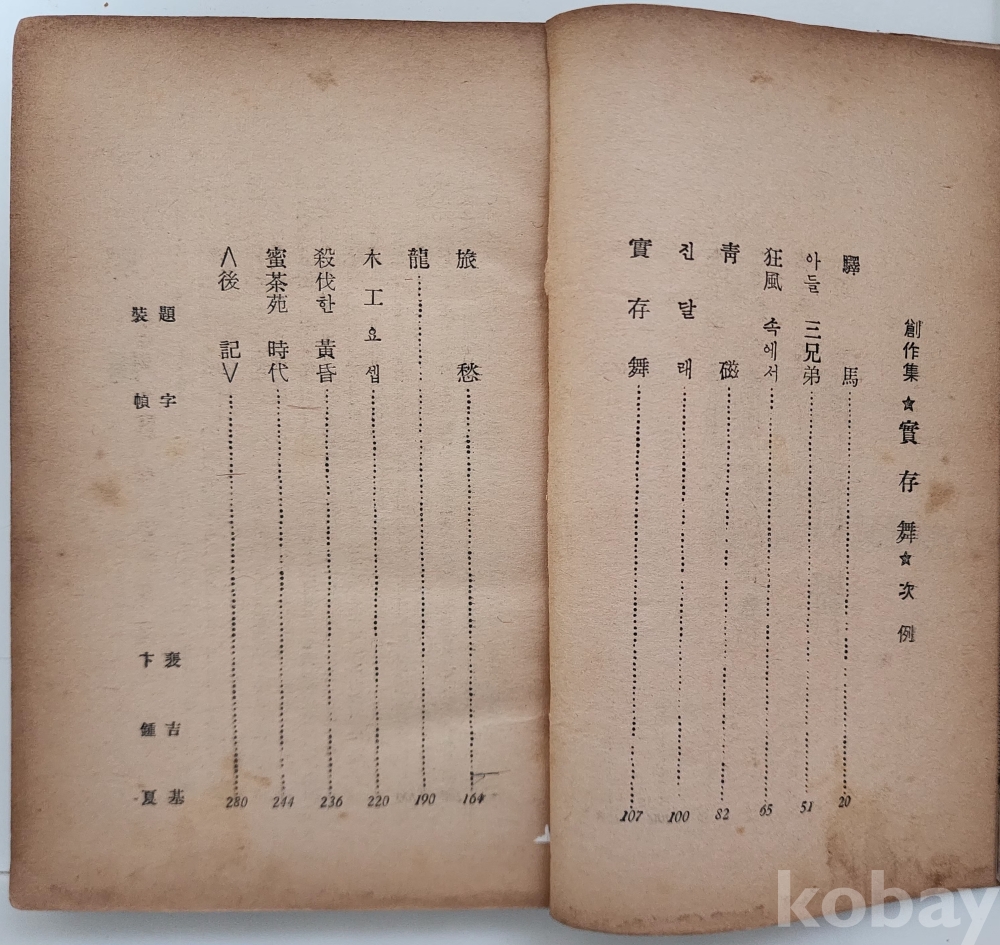 創作集☆實存舞☆次例
驛馬 20
아들 三兄弟 51
狂風 속에서 65
靑磁 82
진달래 100
實存舞 107
旅愁 164
龍 190
木工요셉 220
殺伐한 黃昏 236
蜜茶苑 時代 244
<後記> 280
題字 裵吉基
裝幀 卞鍾夏
kobay